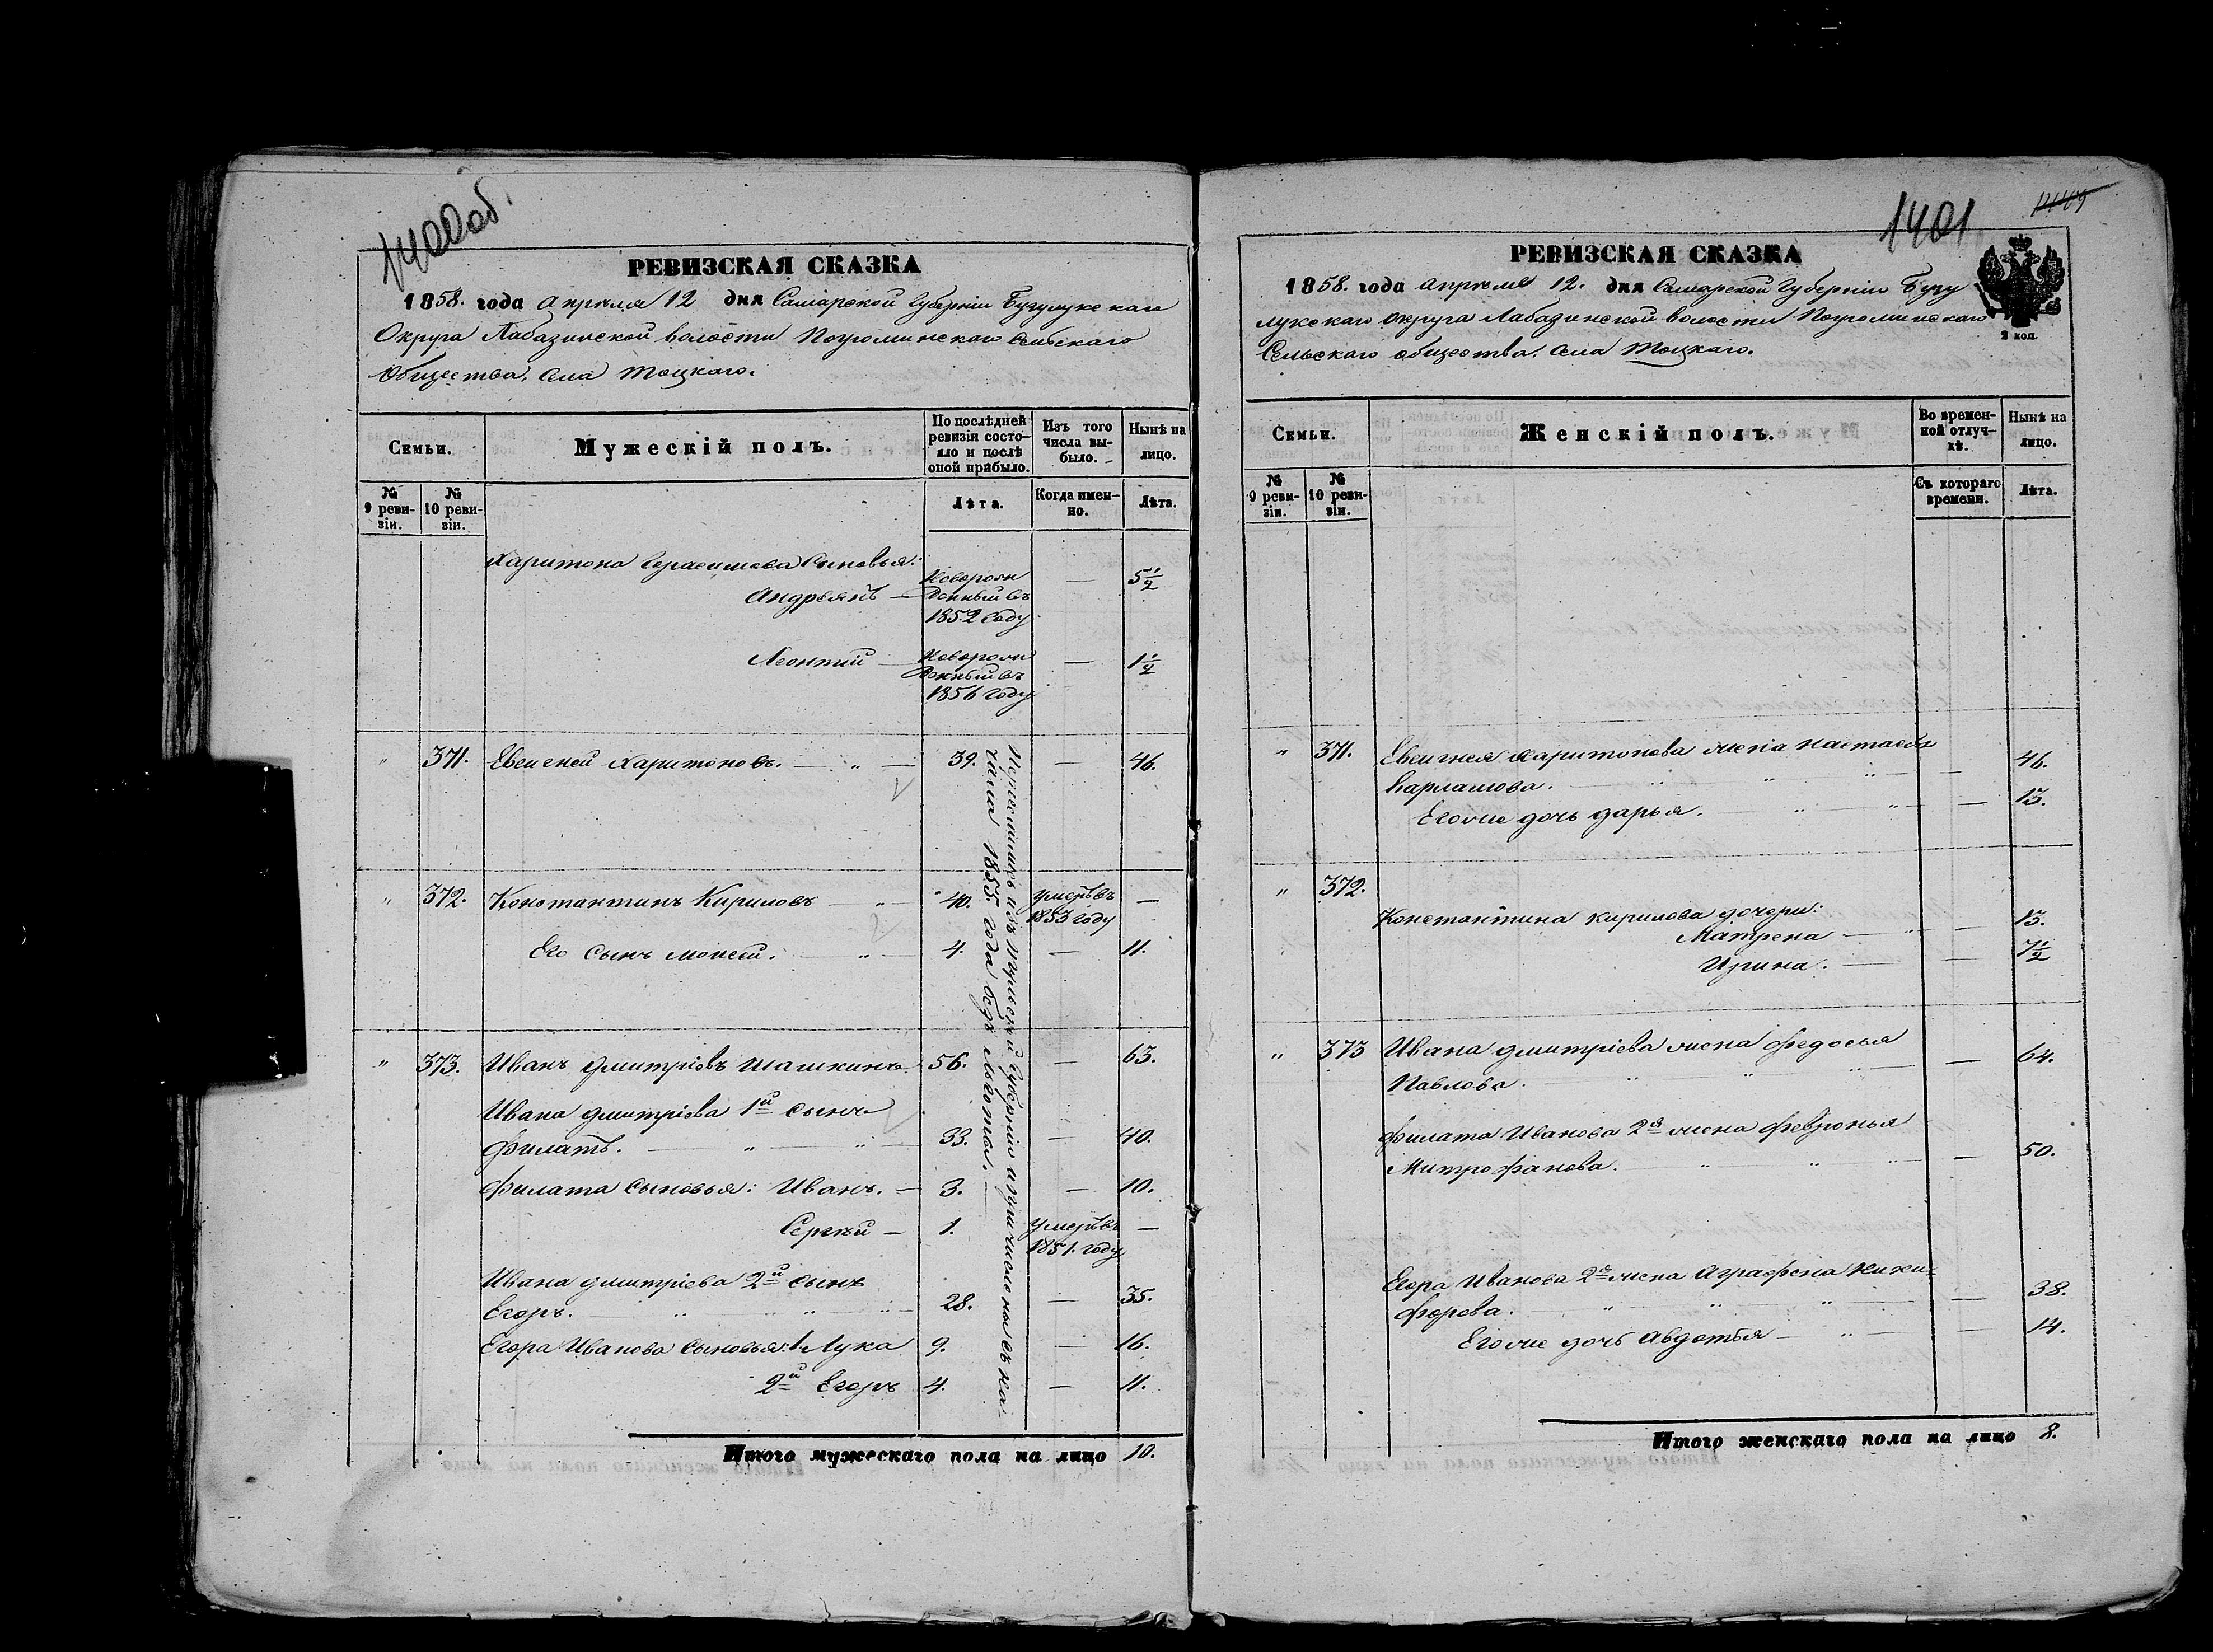 1400об.
РЕВИЗСКАЯ СКАЗКА
1858. года апреля 12 дня Самарской Губерніи Бузулукскаго
Округа Лабазинской волости Погроминскаго Сельскаго
Общества, села Тоцкаго.
Семьи.
Мужескій полъ.
По послѣдней ревизіи состояло и послѣ оной прибыло.
Изъ того числа выбыло.
Нынѣ на лицо.
№ 9 ревизіи.
№ 10 ревизіи.
Лѣта.
Когда именно.
Лѣта.
Харитона Герасимова сыновья:
Андреянъ — Новорожденный въ 1852 году — 5 1/2
Леонтий — Новорожденный въ 1856 году — 1 1/2
" 371. Евсигней Харитоновъ. — " — 39. — 46.
" 372. Константинъ Кириловъ — " — 40. умеръ въ 1853 году —
Его сынъ Моисей. — " — 4. — 11.
" 373. Иванъ Дмитріевъ Шашкинъ. 56. — 63.
Ивана Дмитріева 1й сынъ
Филатъ. — " — " — 33. — 40.
Филата сыновья: Иванъ. — 3. — 10.
Сергѣй — 1. умеръ въ 1851. году —
Ивана Дмитріева 2й сынъ
Егоръ. — " " " — 28. — 35.
Егора Иванова сыновья: 1 Лука 9. — 16.
2й Егоръ 4. — 11.
губерніи и причислены съ начала 1855. года безъ льготы. —
Итого мужескаго пола на лицо 10.
1401
РЕВИЗСКАЯ СКАЗКА
1858. года апреля 12. дня Самарской Губерніи Бузу
лукскаго округа Лабазинской волости Погроминскаго
Сельскаго общества, села Тоцкаго.
2 коп.
Семьи.
Женскій полъ.
Во временной отлучкѣ.
Нынѣ на лицо.
№ 9 ревизіи.
№ 10 ревизіи.
Съ котораго времени.
Лѣта.
" 371. Евсигнея Харитонова жена Настасья
Варламова. — " " " — — 46.
Его же дочь Дарья. — " " — — 13.
" 372.
Константина Кирилова дочери:
Матрена — " — — 13.
Ирина. — — 7 1/2
" 373 Ивана Дмитріева жена Федосья
Павлова. " " " — — 64.
Филата Иванова 2я жена Февронья
Митрофанова. " " " — — 50.
Егора Иванова 2я жена Аграфена Ники=
форова. " " " — — 38.
Его же дочь Авдотья — " — — 14.
Итого женскаго пола на лицо 8.